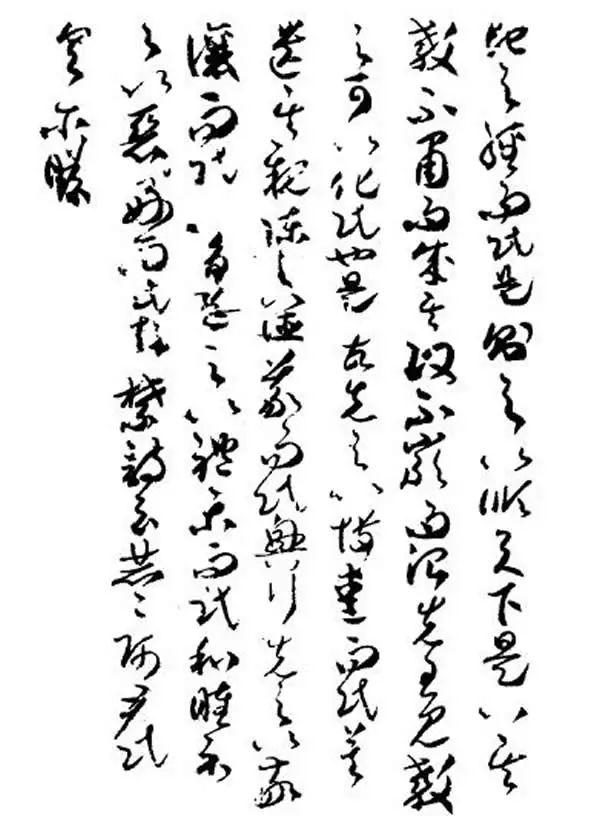 地之經而民是則之以順天下是以其
教不肅而成其政不嚴而治先王見教
之可以化民也是故先之以博愛而民莫
遺其親陳之以德義而民興行先之以敬
讓而民不爭導之以禮樂而民和睦示
之以惡好而民知禁詩云赫〻師尹民
具爾瞻